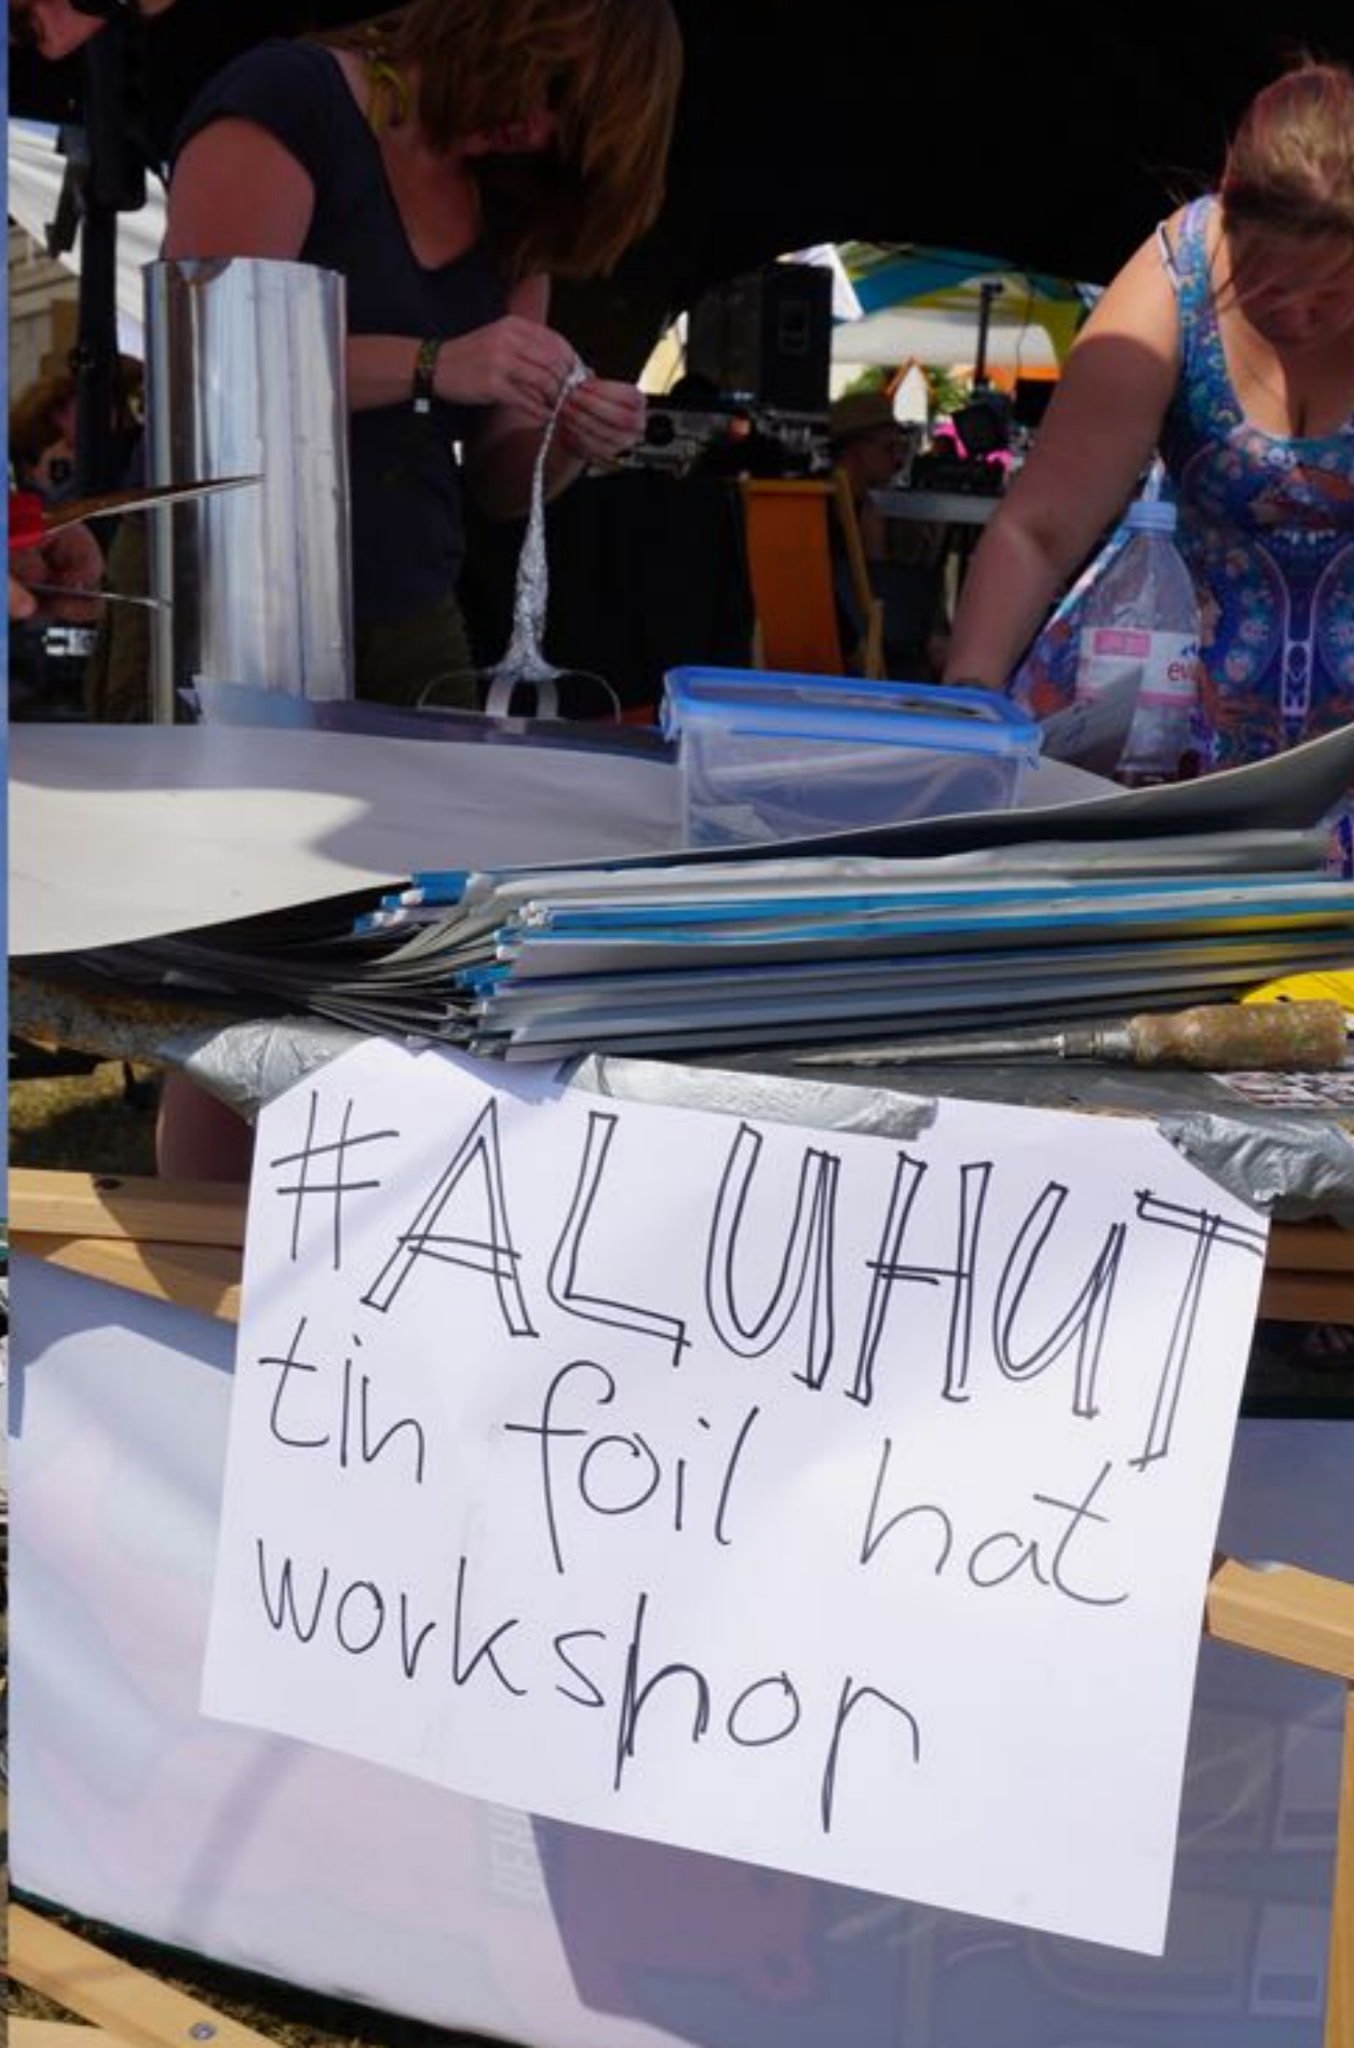 #ALUHUT
tin foil hat
workshop